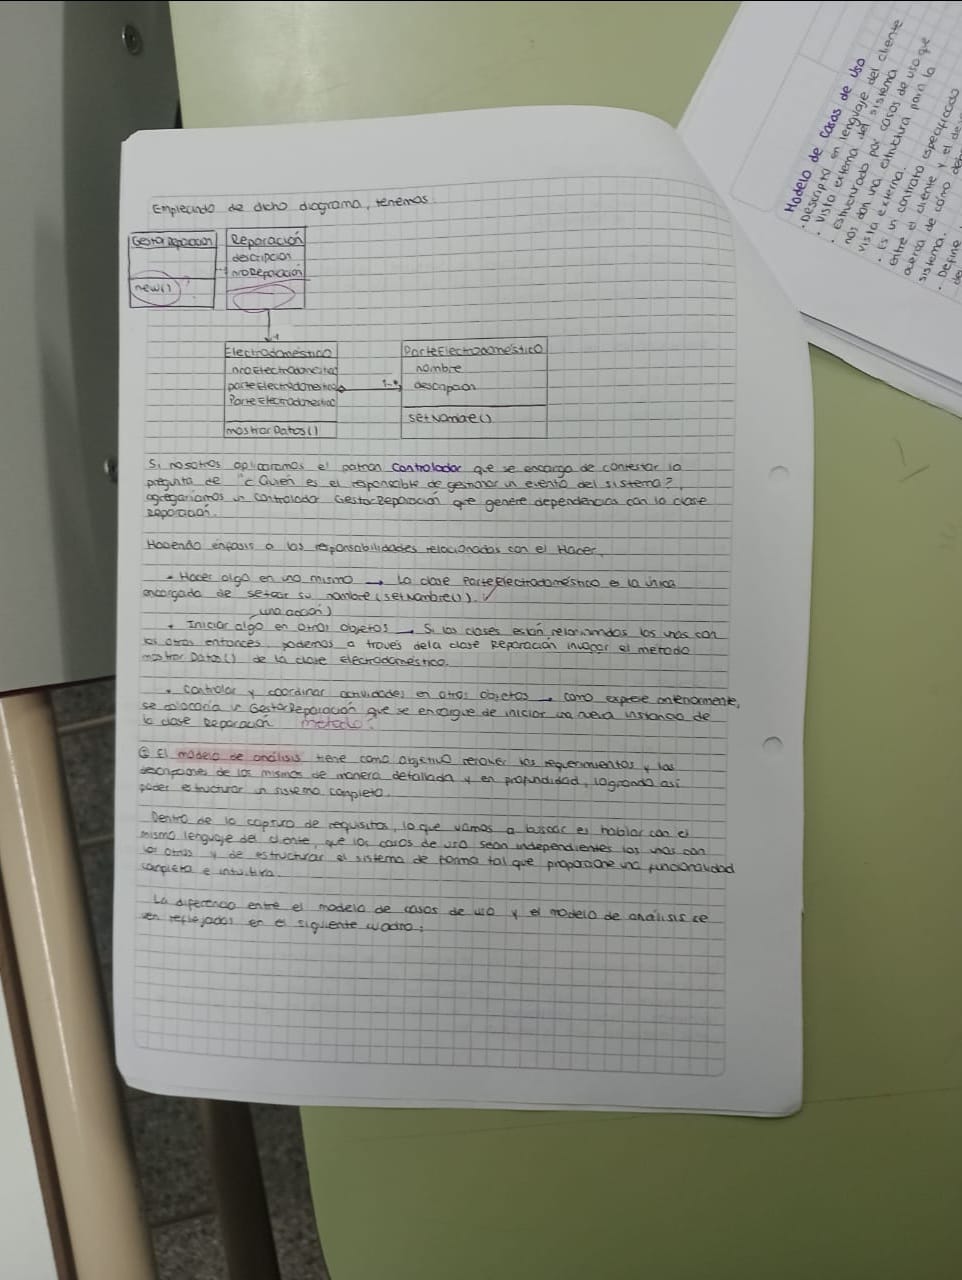 Empezando de dicho diagrama, tenemos
GestorReparacion
new()
?
Reparación
descripcion
nroReparación
1
Electrodoméstico
nroElectrodomestico
parteElectrodomestico
ParteElectrodomestico
mostrarDatos()
1..*
ParteElectrodoméstico
nombre
descripcion
setNombre()
Si nosotros aplicaramos el patrón controlador que se encarga de contestar la
pregunta de "¿Quién es el responsable de gestionar un evento del sistema?,
agregaríamos un controlador GestorReparación que genere dependencias con la clase
Reparación.
Haciendo énfasis a las responsabilidades relacionadas con el Hacer,
• Hacer algo en uno mismo → La clase ParteElectrodoméstico es la única
encargada de setear su nombre (setNombre()). ✓
una acción)
• Iniciar algo en otros objetos → Si las clases están relacionadas las unas con
las otras entonces, podemos a través de la clase Reparación invocar el metodo
mostrar Datos() de la clase electrodoméstico.
• Controlar y coordinar actividades en otros objetos → como exprese anteriormente,
se colocaría un GestorReparación que se encargue de iniciar una nueva instancia de
la clase Reparación metodo?
② El modelo de análisis tiene como objetivo los requerimientos y las
descripciones de los mismos de manera detallada y en profundidad, logrando así
poder estructurar un sistema completo.
Dentro de la captura de requisitos, lo que vamos a buscar es hablar con el
mismo lenguaje del cliente, que los casos de uso sean independientes los unos con
los otros y de estructurar el sistema de forma tal que proporcione una funcionalidad
completa e intuitiva.
La diferencia entre el modelo de casos de uso y el modelo de análisis se
ven reflejados en el siguiente cuadro:
Modelo de Casos de Uso
• Descripto en lenguaje del cliente
• Vista externa del sistema
• Estructurado por casos de uso que
nos dan una estructura para la
vista externa.
• Es un contrato especificado
entre el cliente y el de
acerca de cómo debe
sistema.
• Define